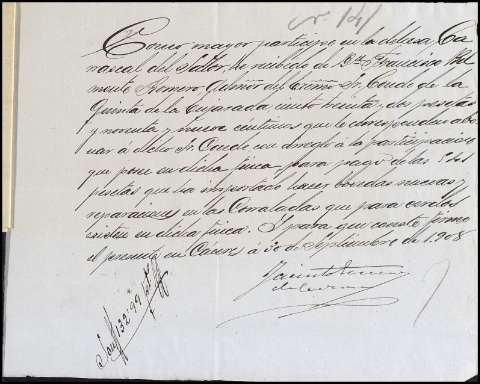 nº 141
Como mayor partícipe en la dehesa Ca-
rrascal del Saltor, he recibido de Dn. Francisco Bel-
monte Romero Admor. del Excmo. Sr. Conde de la
Quinta de la Enjarada ciento treinta y dos pesetas
y noventa y nueve céntimos que le corresponden abo-
nar á dicho Sr. Conde con arreglo á la participación
que posee en dicha finca para pago de las
pesetas que ha importado hacer bovedas nuevas y
reparaciones en las Corraladas que para cerdos
existen en dicha finca. Y para que conste firmo
el presente en Cáceres á 30 de Septiembre de 1908
Jacinto
Son 132'99